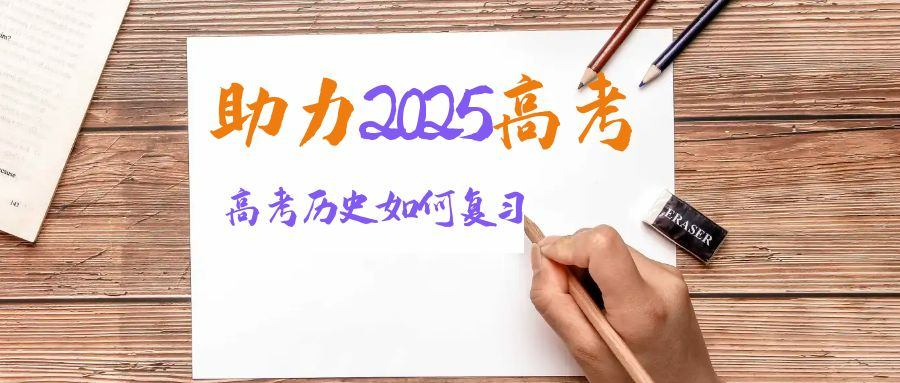 助力2025高考
高考历史如何复习
ERASER
147